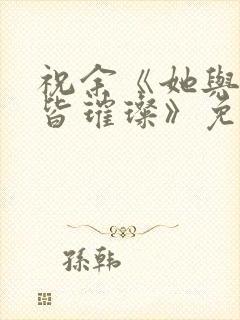 祝余《她與
皆璀璨》免
孫韩